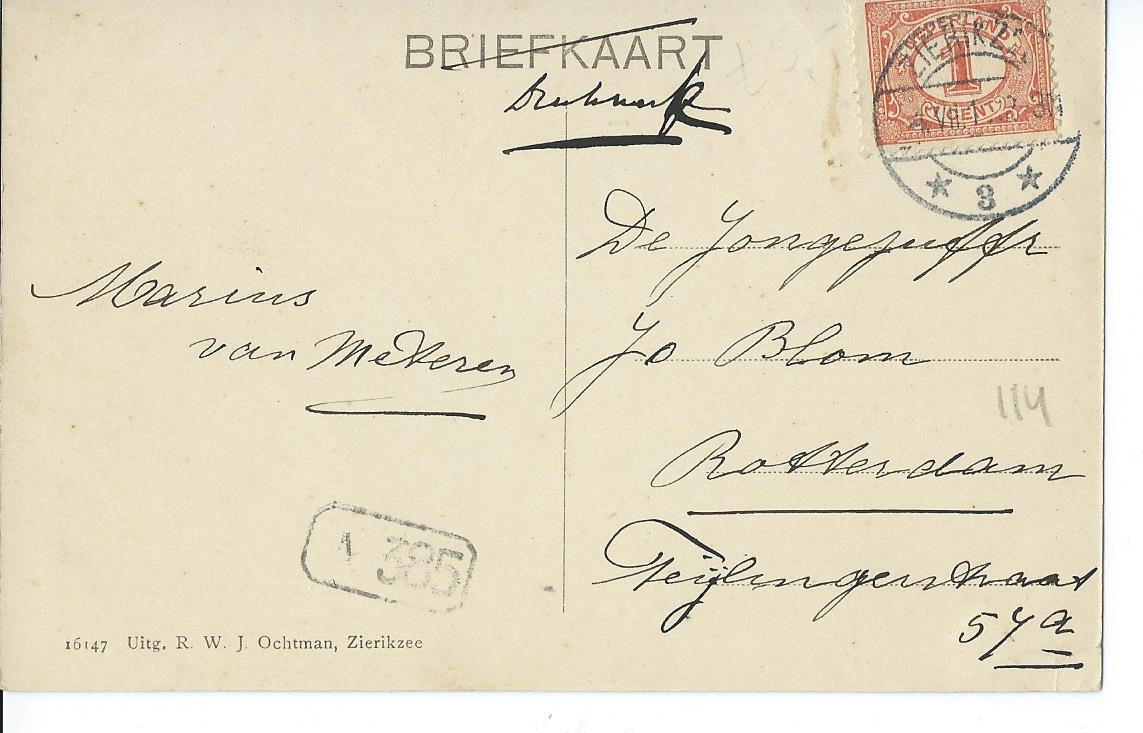 BRIEFKAART
Drukwerk
ZIERIKZEE
1
CENT
3
De Jongejuffr
Jo Blom
Marius
van Meteren
114
Rotterdam
Teijlingerstraat
57a
1 385
16147 Uitg. R. W. J. Ochtman, Zierikzee